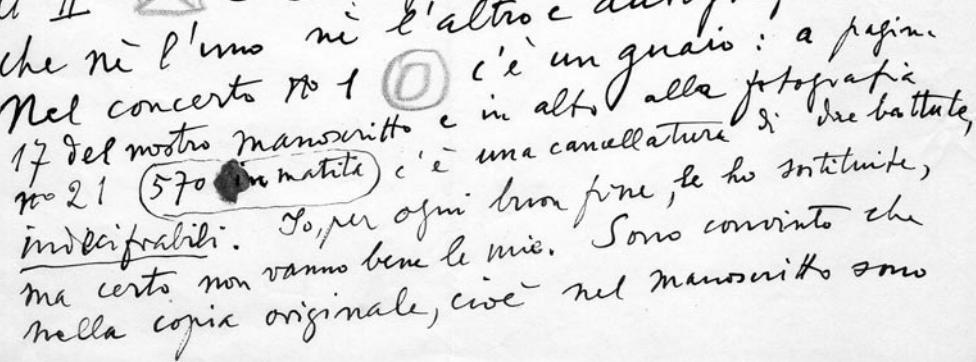 d II
che nè l'uno nè l'altro è
Nel concerto no 1 0 c'è un guaio: a pagina
17 del nostro manoscritto e in alto alla fotografia
no 21 (570 in matita) c'è una cancellatura di due battute,
indecifrabili. Io, per ogni buon fine, le ho sostituite,
ma certo non vanno bene le mie. Sono convinto che
nella copia originale, cioè nel manoscritto sono